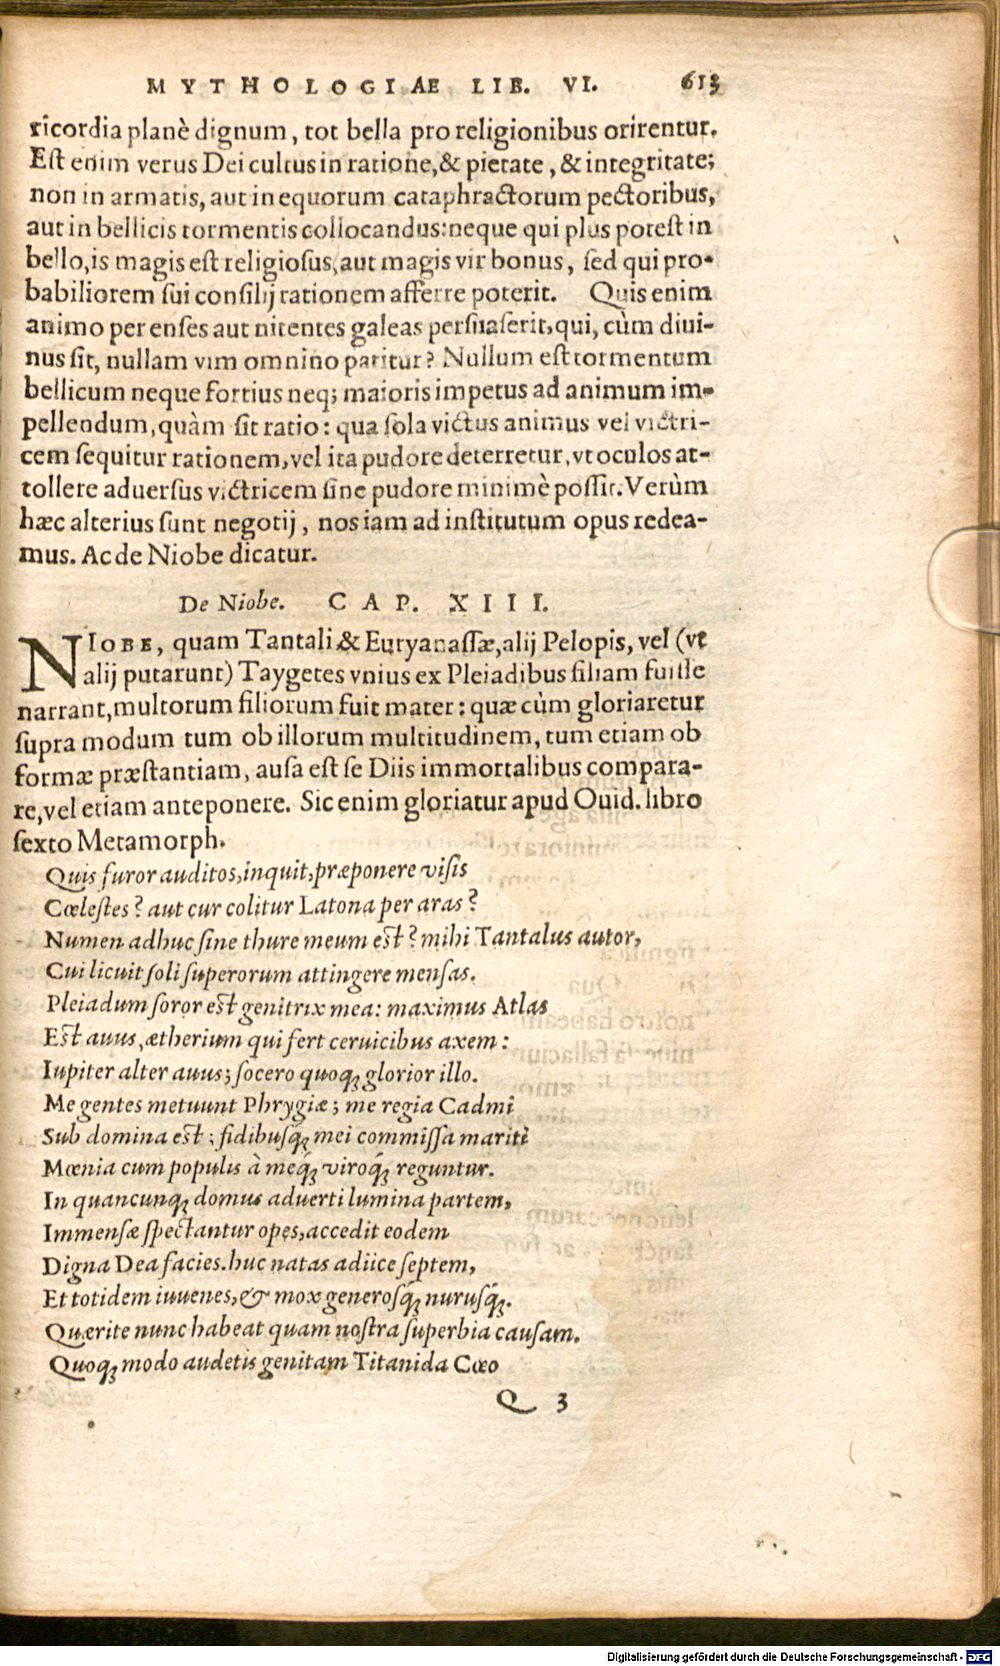 MYTHOLOGIAE LIB. VI. 613
ricordia planè dignum, tot bella pro religionibus orirentur.
Est enim verus Dei cultus in ratione, & pietate, & integritate;
non in armatis, aut in equorum cataphractorum pectoribus,
aut in bellicis tormentis collocandus: neque qui plus potest in
bello, is magis est religiosus, aut magis vir bonus, sed qui pro-
babiliorem sui consilij rationem afferre poterit. Quis enim
animo per enses aut nitentes galeas persuaserit, qui, cùm diui-
nus sit, nullam vim omnino patitur? Nullum est tormentum
bellicum neque fortius neq; maioris impetus ad animum im-
pellendum, quàm sit ratio: qua sola victus animus vel victri-
cem sequitur rationem, vel ita pudore deterretur, vt oculos at-
tollere aduersus victricem sine pudore minimè possit. Verùm
hæc alterius sunt negotij, nos iam ad institutum opus redea-
mus. Ac de Niobe dicatur.
De Niobe. CAP. XIII.
NIOBE, quam Tantali & Euryanassæ, alij Pelopis, vel (vt
alij putarunt) Taygetes vnius ex Pleiadibus filiam fuisse
narrant, multorum filiorum fuit mater: quæ cùm gloriaretur
supra modum tum ob illorum multitudinem, tum etiam ob
formæ præstantiam, ausa est se Diis immortalibus compara-
re, vel etiam anteponere. Sic enim gloriatur apud Ouid. libro
sexto Metamorph.
Quis furor auditos, inquit, præponere visis
Cœlestes? aut cur colitur Latona per aras?
Numen adhuc sine thure meum est? mihi Tantalus autor,
Cui licuit soli superorum attingere mensas.
Pleiadum soror est genitrix mea: maximus Atlas
Est auus, ætherium qui fert ceruicibus axem:
Iupiter alter auus; socero quoq; glorior illo.
Me gentes metuunt Phrygiæ; me regia Cadmi
Sub domina est; fidibusq́; mei commissa mariti
Mœnia cum populis à meq́; viroq́; reguntur.
In quancunq; domus aduerti lumina partem,
Immensæ spectantur opes, accedit eodem
Digna Dea facies. huc natas adiice septem,
Et totidem iuuenes, & mox generosq́; nurusq́;.
Quærite nunc habeat quam nostra superbia causam.
Quoq; modo audetis genitam Titanida Cœo
Q 3
Digitalisierung gefördert durch die Deutsche Forschungsgemeinschaft - DFG